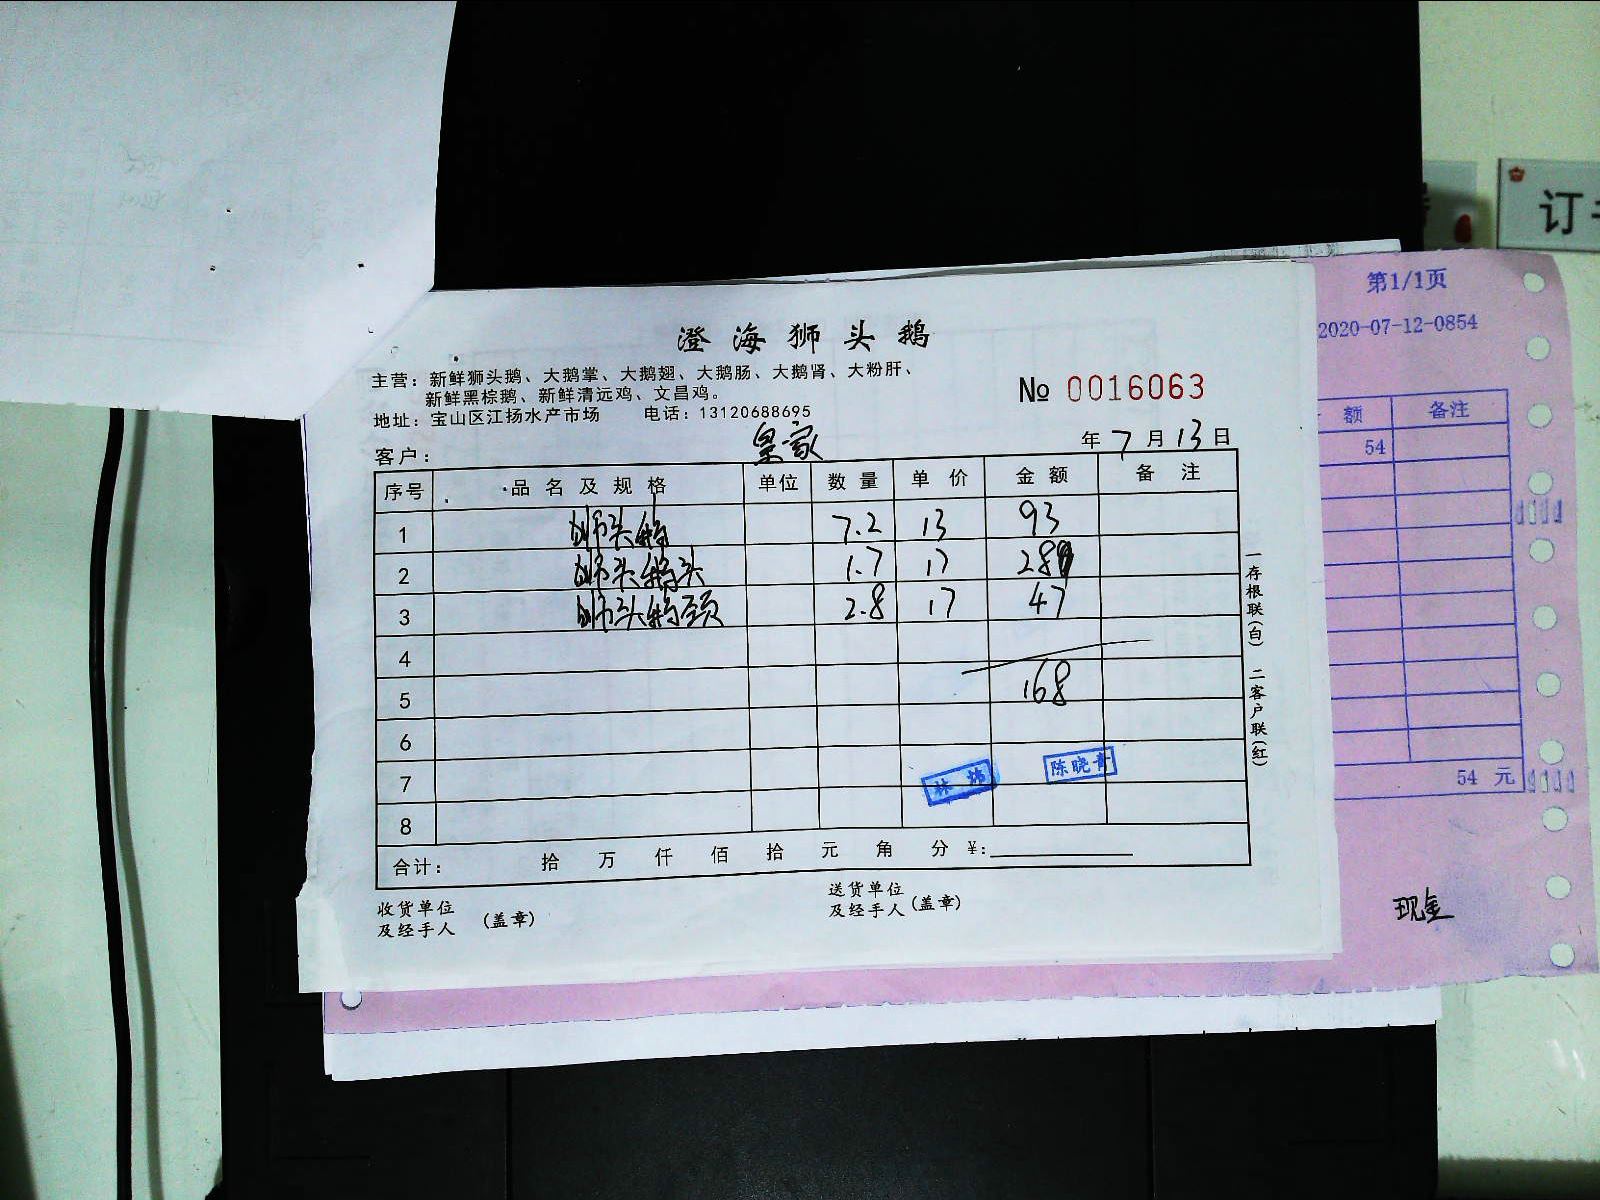 澄海狮头鹅
主营：新鲜狮头鹅、大鹅掌、大鹅翅、大鹅肠、大鹅肾、大粉肝、
新鲜黑棕鹅、新鲜清远鸡、文昌鸡。
地址：宝山区江扬水产市场 电话：13120688695
№ 0016063
客户： 皇家 年 7 月 13 日
序号 品名及规格 单位 数量 单价 金额 备注
1 狮头鹅 7.2 13 93
2 狮头鹅头 1.7 17 28
3 狮头鹅颈 2.8 17 47
4
5 168
6
7
8
林炜 陈晓青
合计： 拾 万 仟 佰 拾 元 角 分 ¥:
收货单位
及经手人 (盖章)
送货单位
及经手人 (盖章)
一存根联(白) 二客户联(红)
第1/1页
2020-07-12-0854
额 备注
54
54 元
现金
订